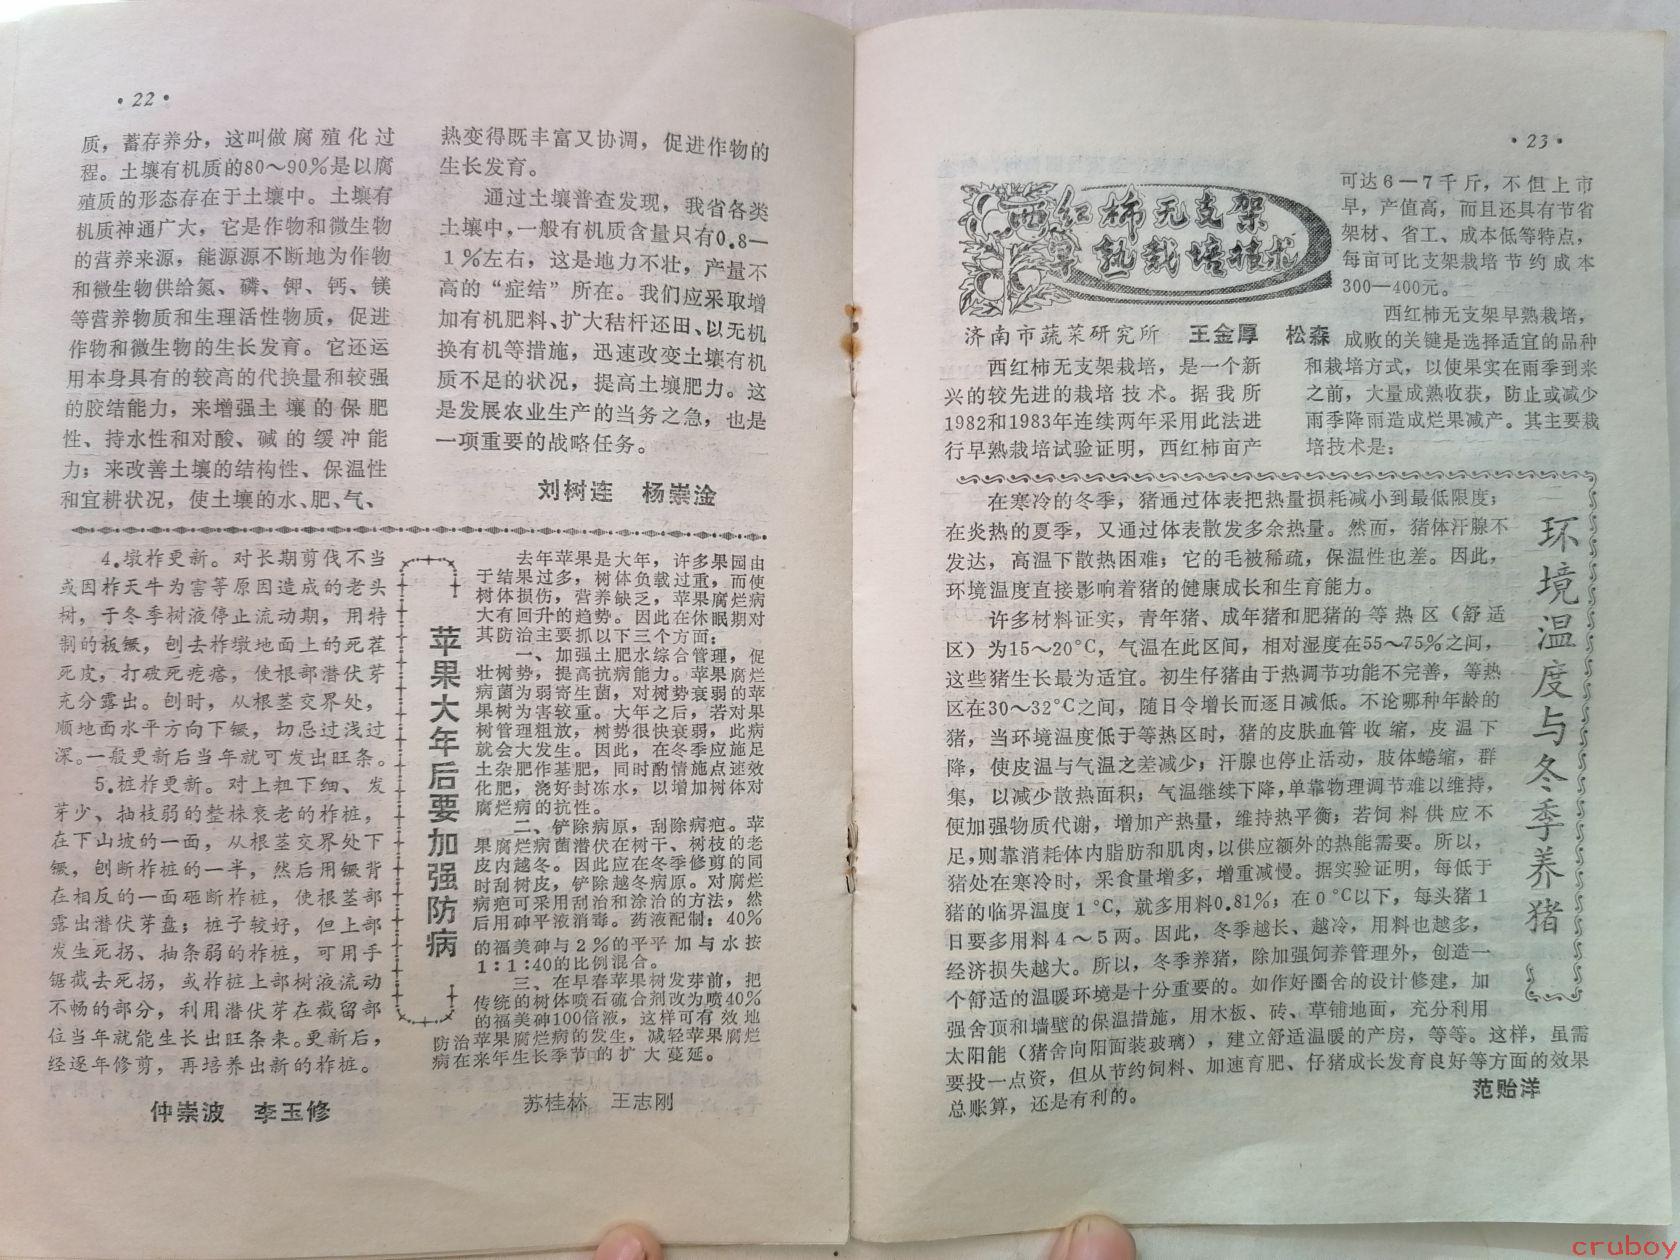 ·22·
质，蓄存养分，这叫做腐殖化过
程。土壤有机质的80～90%是以腐
殖质的形态存在于土壤中。土壤有
机质神通广大，它是作物和微生物
的营养来源，能源源不断地为作物
和微生物供给氮、磷、钾、钙、镁
等营养物质和生理活性物质，促进
作物和微生物的生长发育。它还运
用本身具有的较高的代换量和较强
的胶结能力，来增强土壤的保肥
性、持水性和对酸、碱的缓冲能
力；来改善土壤的结构性、保温性
和宜耕状况，使土壤的水、肥、气、
热变得既丰富又协调，促进作物的
生长发育。
通过土壤普查发现，我省各类
土壤中，一般有机质含量只有0.8—
1%左右，这是地力不壮，产量不
高的“症结”所在。我们应采取增
加有机肥料、扩大秸杆还田、以无机
换有机等措施，迅速改变土壤有机
质不足的状况，提高土壤肥力。这
是发展农业生产的当务之急，也是
一项重要的战略任务。
刘树连 杨崇淦
4.墩柞更新。对长期剪伐不当
或因柞天牛为害等原因造成的老头
树，于冬季树液停止流动期，用特
制的板镢，刨去柞墩地面上的死茬
死皮，打破死疙瘩，使根部潜伏芽
充分露出。刨时，从根茎交界处，
顺地面水平方向下镢，切忌过浅过
深。一般更新后当年就可发出旺条。
5.桩柞更新。对上粗下细、发
芽少、抽枝弱的整株衰老的柞桩，
在下山坡的一面，从根茎交界处下
镢，刨断柞桩的一半，然后用镢背
在相反的一面砸断柞桩，使根茎部
露出潜伏芽盘；桩子较好，但上部
发生死拐、抽条弱的柞桩，可用手
锯截去死拐，或柞桩上部树液流动
不畅的部分，利用潜伏芽在截留部
位当年就能生长出旺条来。更新后，
经逐年修剪，再培养出新的柞桩。
仲崇波 李玉修
苹果大年后要加强防病
去年苹果是大年，许多果园由
于结果过多，树体负载过重，而使
树体损伤，营养缺乏，苹果腐烂病
大有回升的趋势。因此在休眠期对
其防治主要抓以下三个方面：
一、加强土肥水综合管理，促
壮树势，提高抗病能力。苹果腐烂
病菌为弱寄生菌，对树势衰弱的苹
果树为害较重。大年之后，若对果
树管理粗放，树势很快衰弱，此病
就会大发生。因此，在冬季应施足
土杂肥作基肥，同时酌情施点速效
化肥，浇好封冻水，以增加树体对
腐烂病的抗性。
二、铲除病原，刮除病疤。苹
果腐烂病菌潜伏在树干、树枝的老
皮内越冬。因此应在冬季修剪的同
时刮树皮，铲除越冬病原。对腐烂
病疤可采用刮治和涂治的方法，然
后用砷平液消毒。药液配制：40%
的福美砷与2%的平平加与水按
1:1:40的比例混合。
三、在早春苹果树发芽前，把
传统的树体喷石硫合剂改为喷40%
的福美砷100倍液，这样可有效地
防治苹果腐烂病的发生，减轻苹果腐烂
病在来年生长季节的扩大蔓延。
苏桂林 王志刚
·23·
西红柿无支架
早熟栽培技术
济南市蔬菜研究所 王金厚 松森
西红柿无支架栽培，是一个新
兴的较先进的栽培技术。据我所
1982和1983年连续两年采用此法进
行早熟栽培试验证明，西红柿亩产
可达6—7千斤，不但上市
早，产值高，而且还具有节省
架材、省工、成本低等特点，
每亩可比支架栽培节约成本
300—400元。
西红柿无支架早熟栽培，
成败的关键是选择适宜的品种
和栽培方式，以使果实在雨季到来
之前，大量成熟收获，防止或减少
雨季降雨造成烂果减产。其主要栽
培技术是：
环境温度与冬季养猪
在寒冷的冬季，猪通过体表把热量损耗减小到最低限度；
在炎热的夏季，又通过体表散发多余热量。然而，猪体汗腺不
发达，高温下散热困难；它的毛被稀疏，保温性也差。因此，
环境温度直接影响着猪的健康成长和生育能力。
许多材料证实，青年猪、成年猪和肥猪的等热区（舒适
区）为15～20°C，气温在此区间，相对湿度在55～75%之间，
这些猪生长最为适宜。初生仔猪由于热调节功能不完善，等热
区在30～32°C之间，随日令增长而逐日减低。不论哪种年龄的
猪，当环境温度低于等热区时，猪的皮肤血管收缩，皮温下
降，使皮温与气温之差减少；汗腺也停止活动，肢体蜷缩，群
集，以减少散热面积；气温继续下降，单靠物理调节难以维持，
便加强物质代谢，增加产热量，维持热平衡；若饲料供应不
足，则靠消耗体内脂肪和肌肉，以供应额外的热能需要。所以，
猪处在寒冷时，采食量增多，增重减慢。据实验证明，每低于
猪的临界温度1°C，就多用料0.81%；在0°C以下，每头猪1
日要多用料4～5两。因此，冬季越长、越冷，用料也越多，
经济损失越大。所以，冬季养猪，除加强饲养管理外，创造一
个舒适的温暖环境是十分重要的。如作好圈舍的设计修建，加
强舍顶和墙壁的保温措施，用木板、砖、草铺地面，充分利用
太阳能（猪舍向阳面装玻璃），建立舒适温暖的产房，等等。这样，虽需
要投一点资，但从节约饲料、加速育肥、仔猪成长发育良好等方面的效果
总账算，还是有利的。
范贻洋
cruboy